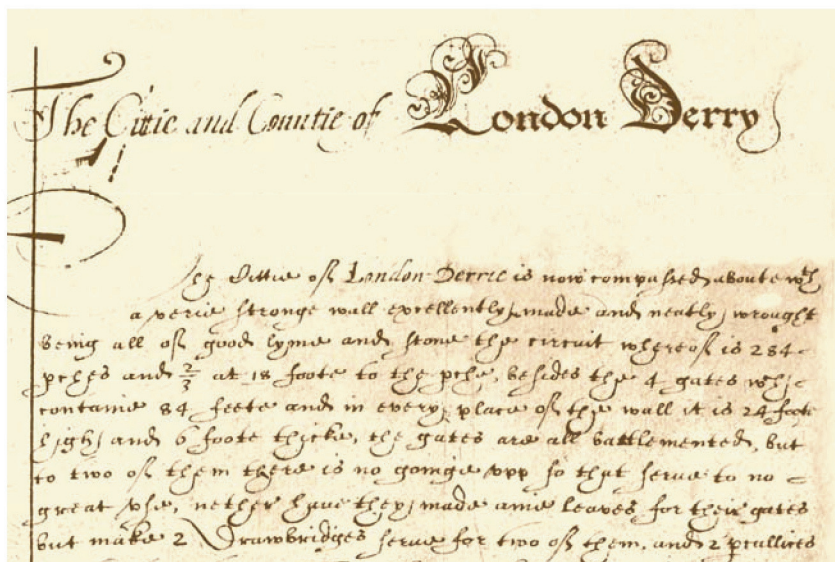 The Cittie and Countie of London Derry
The Cittie of London Derrie is now compassed aboute wth
a verie stronge wall excellently made and neatly wrought
being all of good lyme and stone the circuit whereof is 284
pches and 2/3 at 18 foote to the pche, besides the 4 gates wch
containe 84 feete and in every place of the wall it is 24 foote
high and 6 foote thicke, the gates are all battlemented, but
to two of them there is no goinge vpp so that serue to no
great vse, nether haue they made anie leaves for their gates
but make 2 Drawbridges serue for two of them, and 2 pcullices